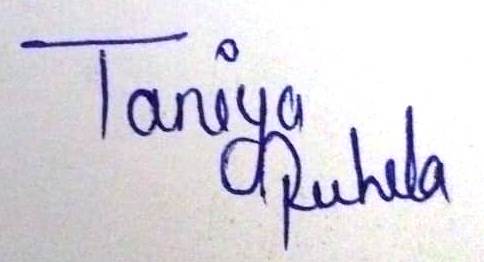 Taniya
Ruhela